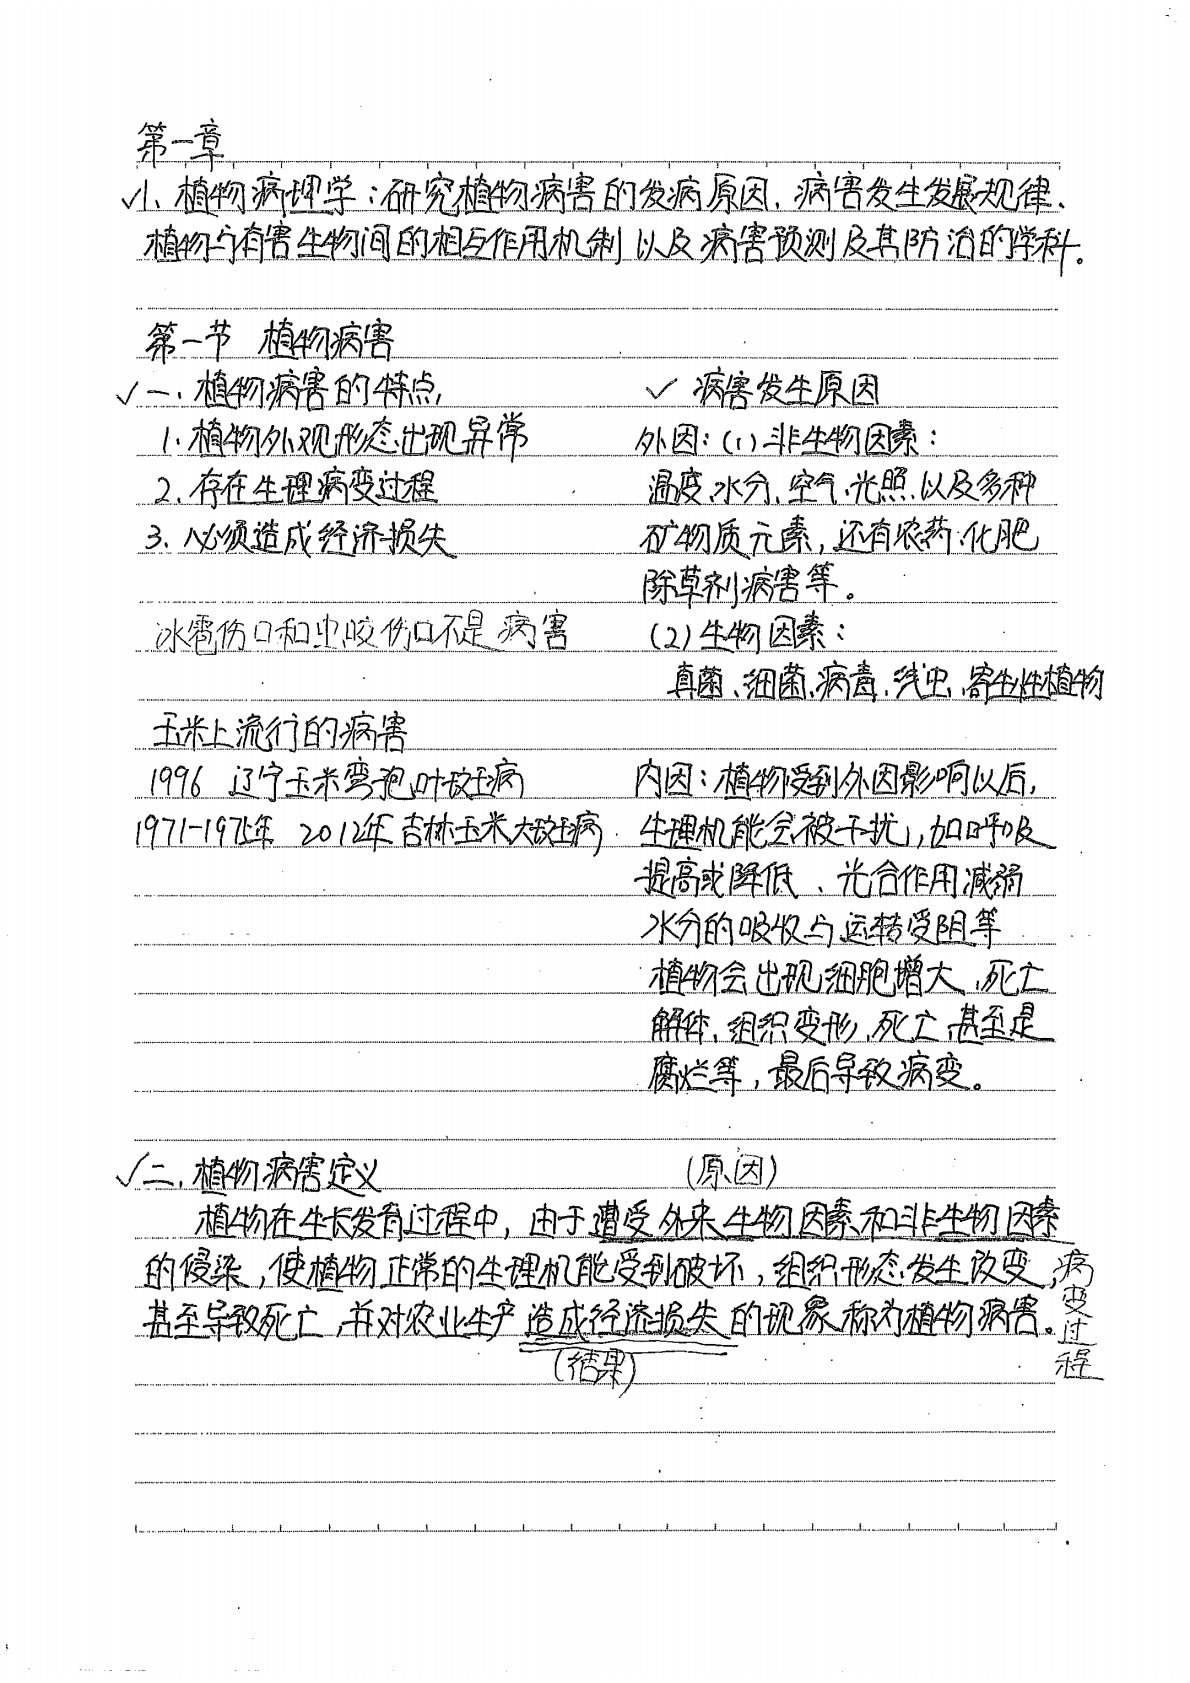 第一章
✓1、植物病理学:研究植物病害的发病原因、病害发生发展规律、
植物与有害生物间的相互作用机制以及病害预测及其防治的学科。
第一节 植物病害
✓一、植物病害的特点
1、植物外观形态出现异常
2、存在生理病变过程
3、必须造成经济损失
冰雹伤口和虫咬伤口不是病害
玉米上流行的病害
1996 辽宁玉米弯孢叶斑病
1971-1975年 2012年吉林玉米大斑病
✓ 病害发生原因
外因:(1)非生物因素:
温度、水分、空气、光照、以及多种
矿物质元素,还有农药、化肥
除草剂病害等。
(2)生物因素:
真菌、细菌、病毒、线虫、寄生性植物
内因:植物受到外因影响以后,
生理机能会被干扰,如呼吸
提高或降低、光合作用减弱
水分的吸收与运转受阻等
植物会出现细胞增大、死亡
解体、组织变形、死亡、甚至是
腐烂等,最后导致病变。
✓二、植物病害定义
(原因)
植物在生长发育过程中,由于遭受外来生物因素和非生物因素
的侵染,使植物正常的生理机能受到破坏,组织形态发生改变,
甚至导致死亡,并对农业生产造成经济损失的现象称为植物病害。
(结果)
病变过程